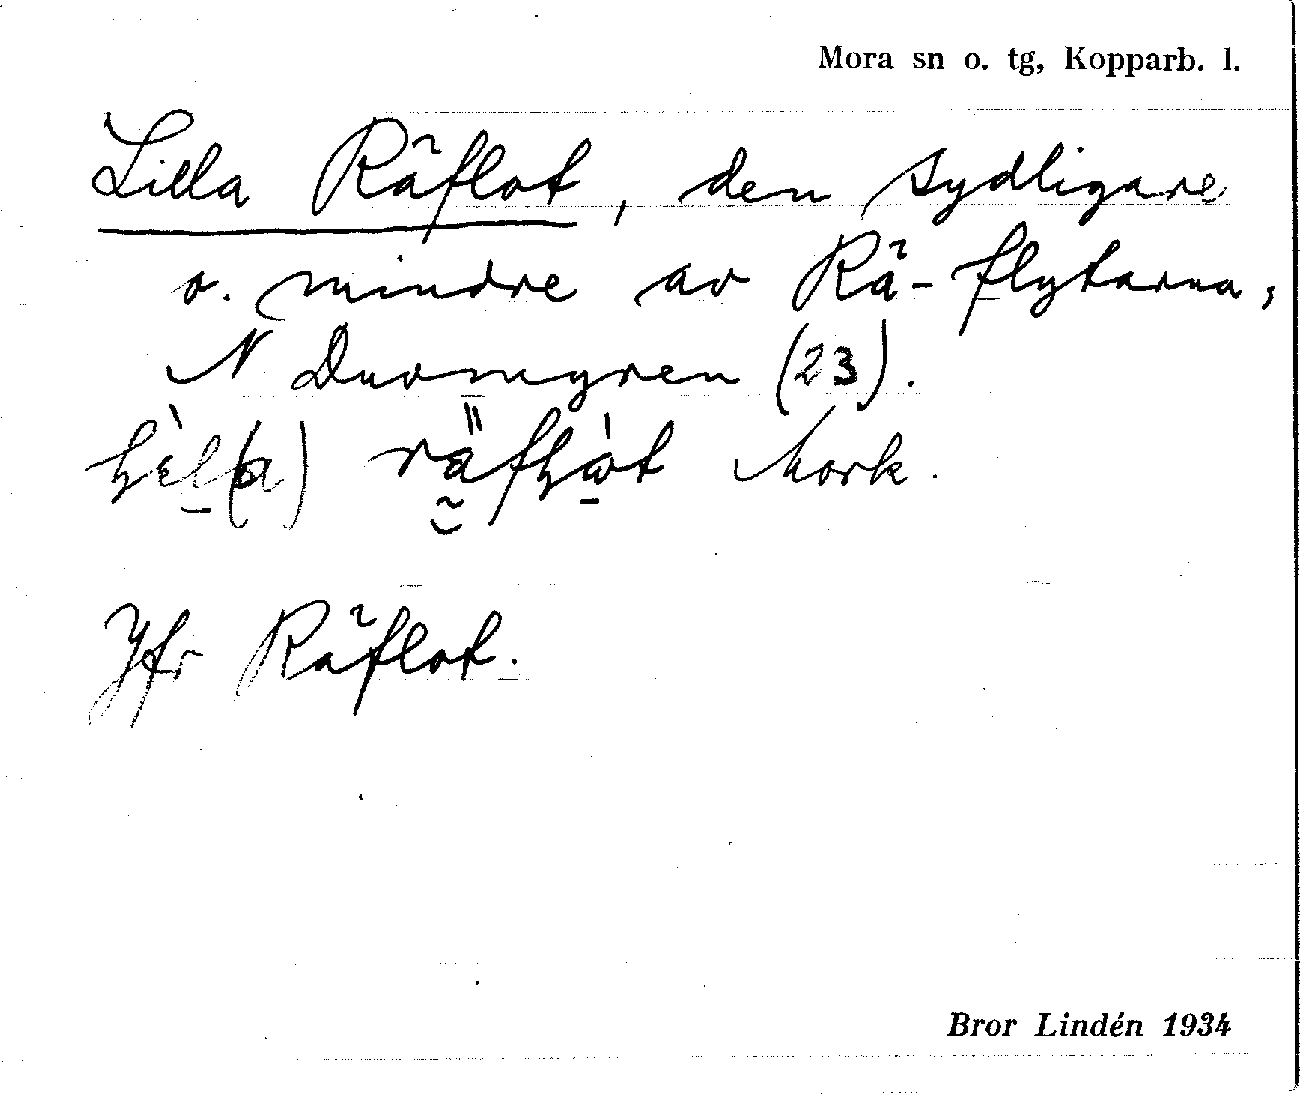 Mora sn o. tg, Kopparb. l.
Lilla Räflot, den sydligare
o. mindre av Rä-flytarna,
N Duvmyren (23).
Mork.
Jfr Räflot.
Bror Lindén 1934